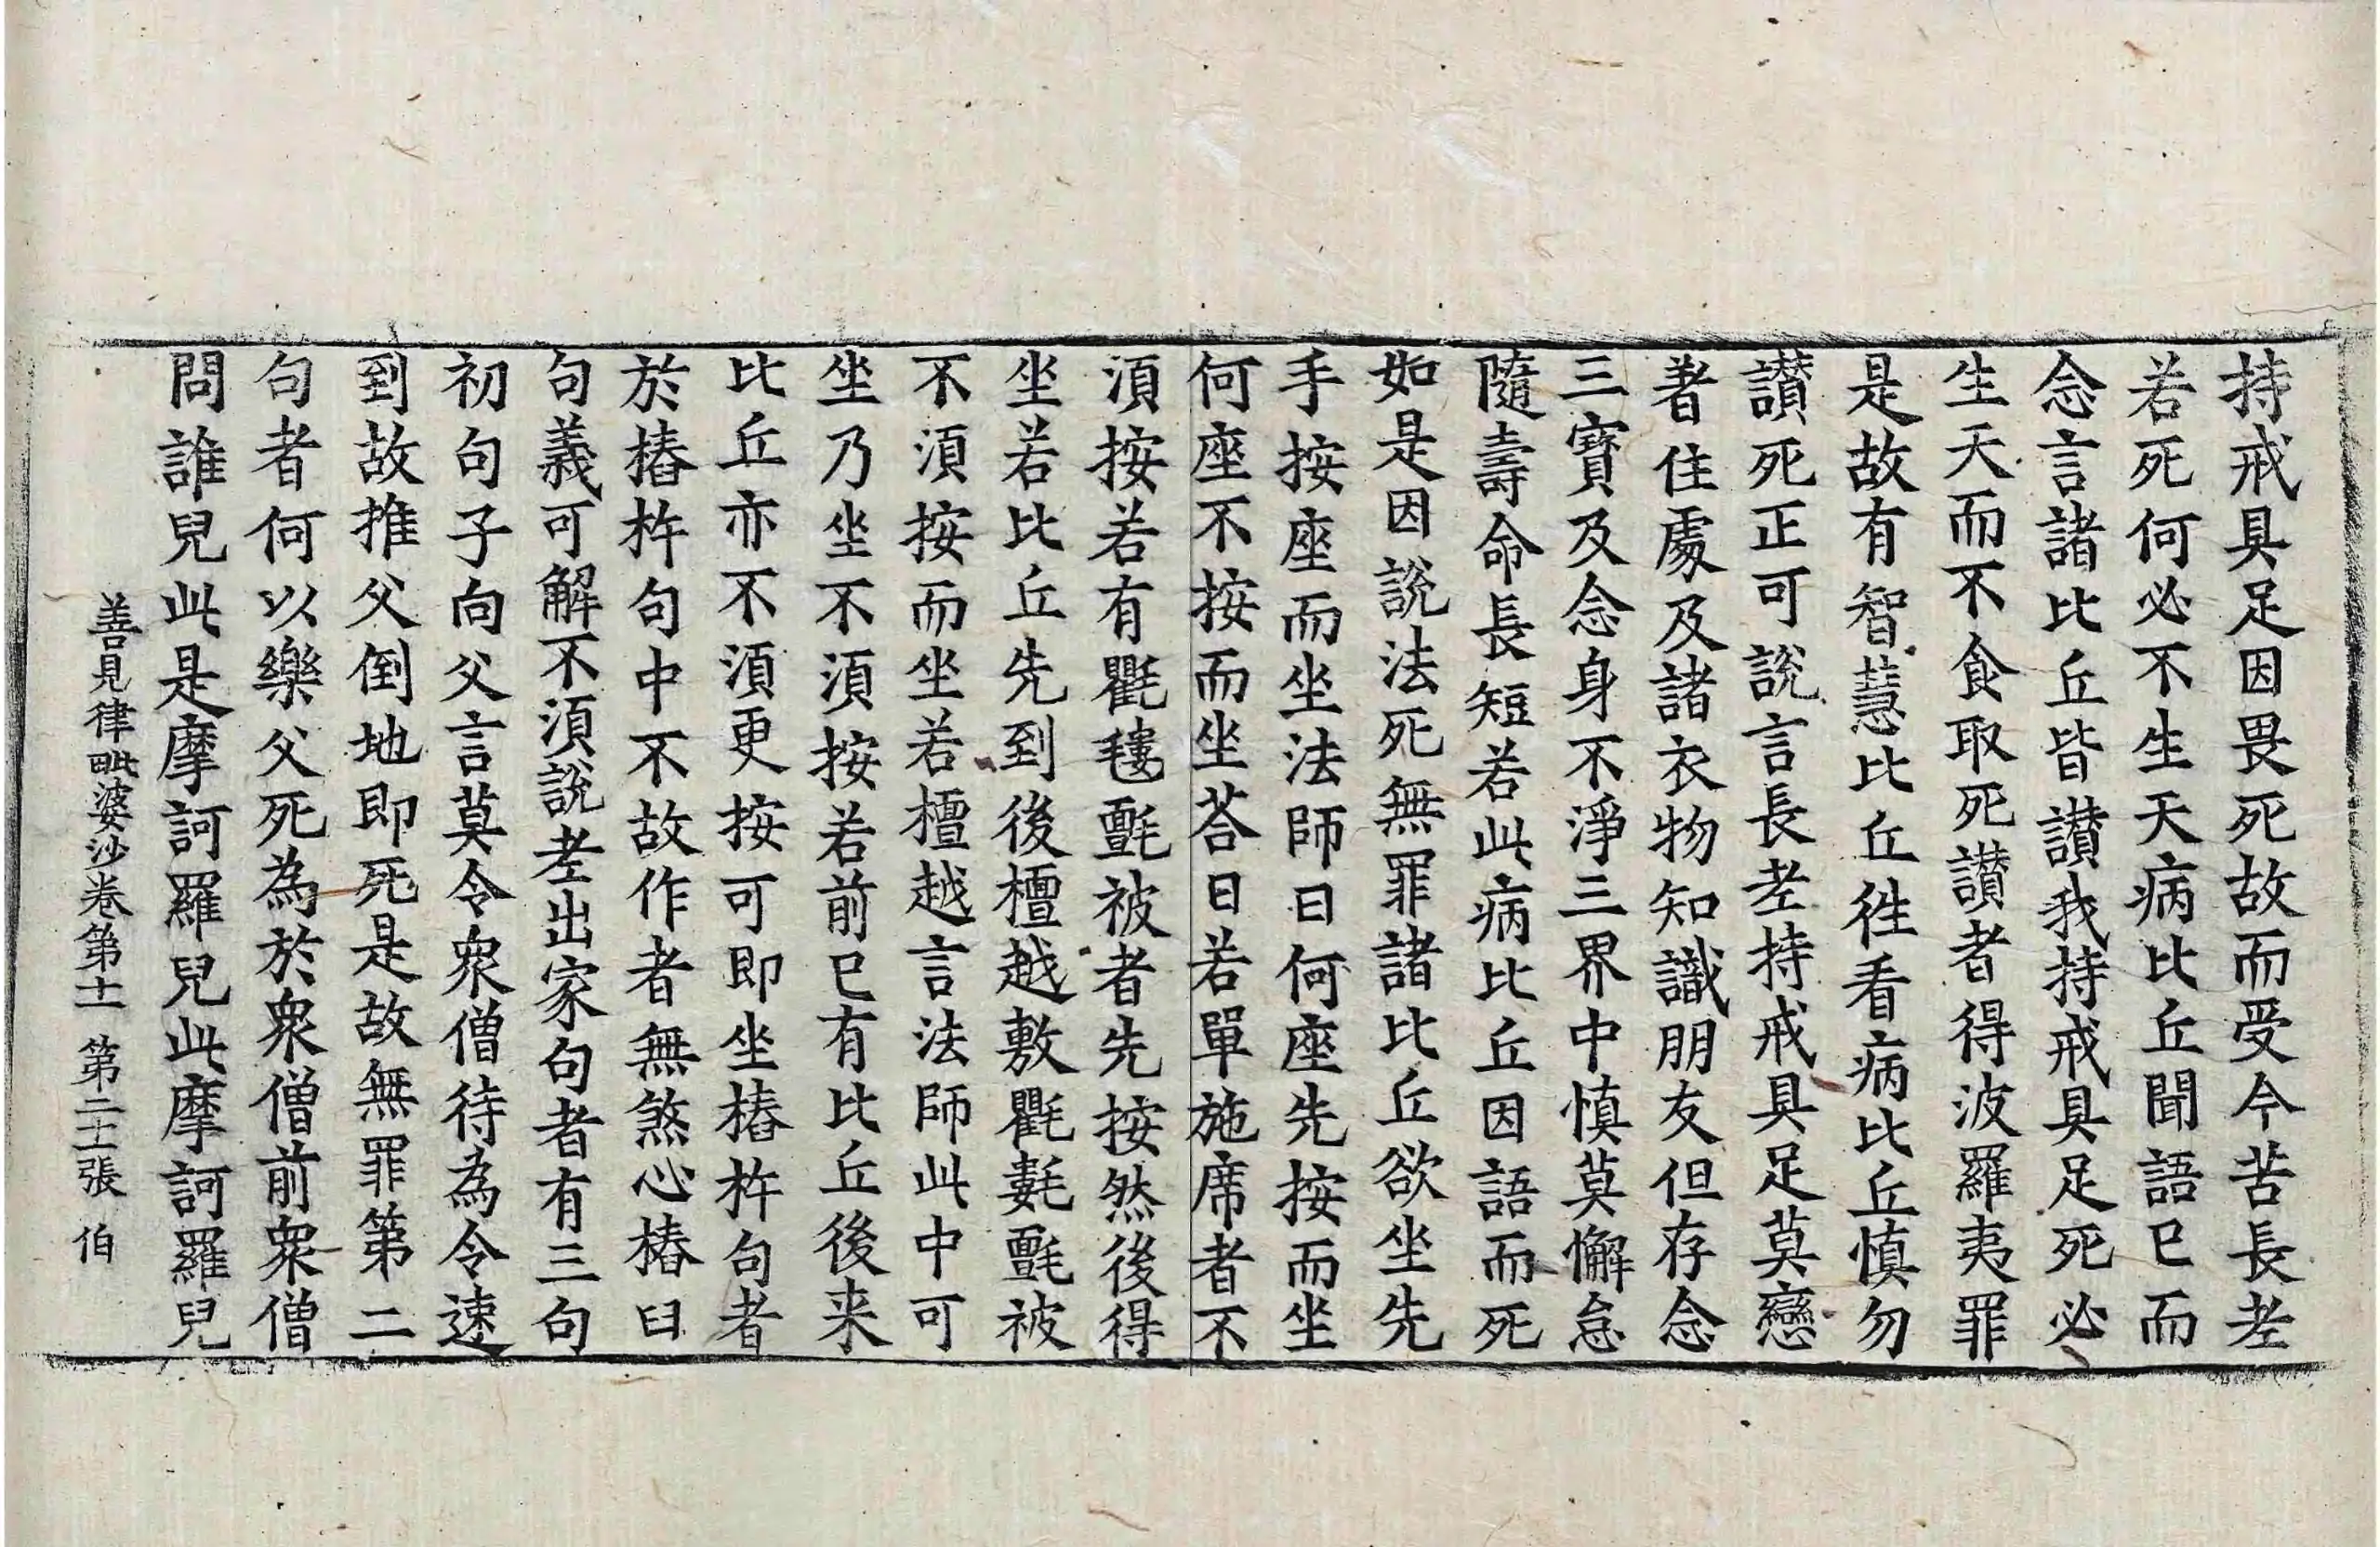 持戒具足因畏死故而受今苦長老
若死何必不生天病比丘聞語已而
念言諸比丘皆讃我持戒具足死必
生天而不食取死讃者得波羅夷罪
是故有智慧比丘徃看病比丘慎勿
讃死正可說言長老持戒具足莫戀
著住處及諸衣物知識朋友但存念
三寶及念身不淨三界中慎莫懈怠
隨壽命長短若此病比丘因語而死
如是因說法死無罪諸比丘欲坐先
手按座而坐法師曰何座先按而坐
何座不按而坐荅曰若單施席者不
須按若有氍毺㲲被者先按然後得
坐若比丘先到後檀越敷氍㲣㲲被
不須按而坐若檀越言法師此中可
坐乃坐不須按若前已有比丘後来
比丘亦不須更按可即坐樁杵句者
於樁杵句中不故作者無煞心樁臼
句義可解不須說老出家句者有三句
初句子向父言莫令衆僧待為令速
到故推父倒地即死是故無罪第二
句者何以樂父死為於衆僧前衆僧
問誰兒此是摩訶羅兒此摩訶羅兒
善見律毗婆沙卷第十一 第二十一張 伯